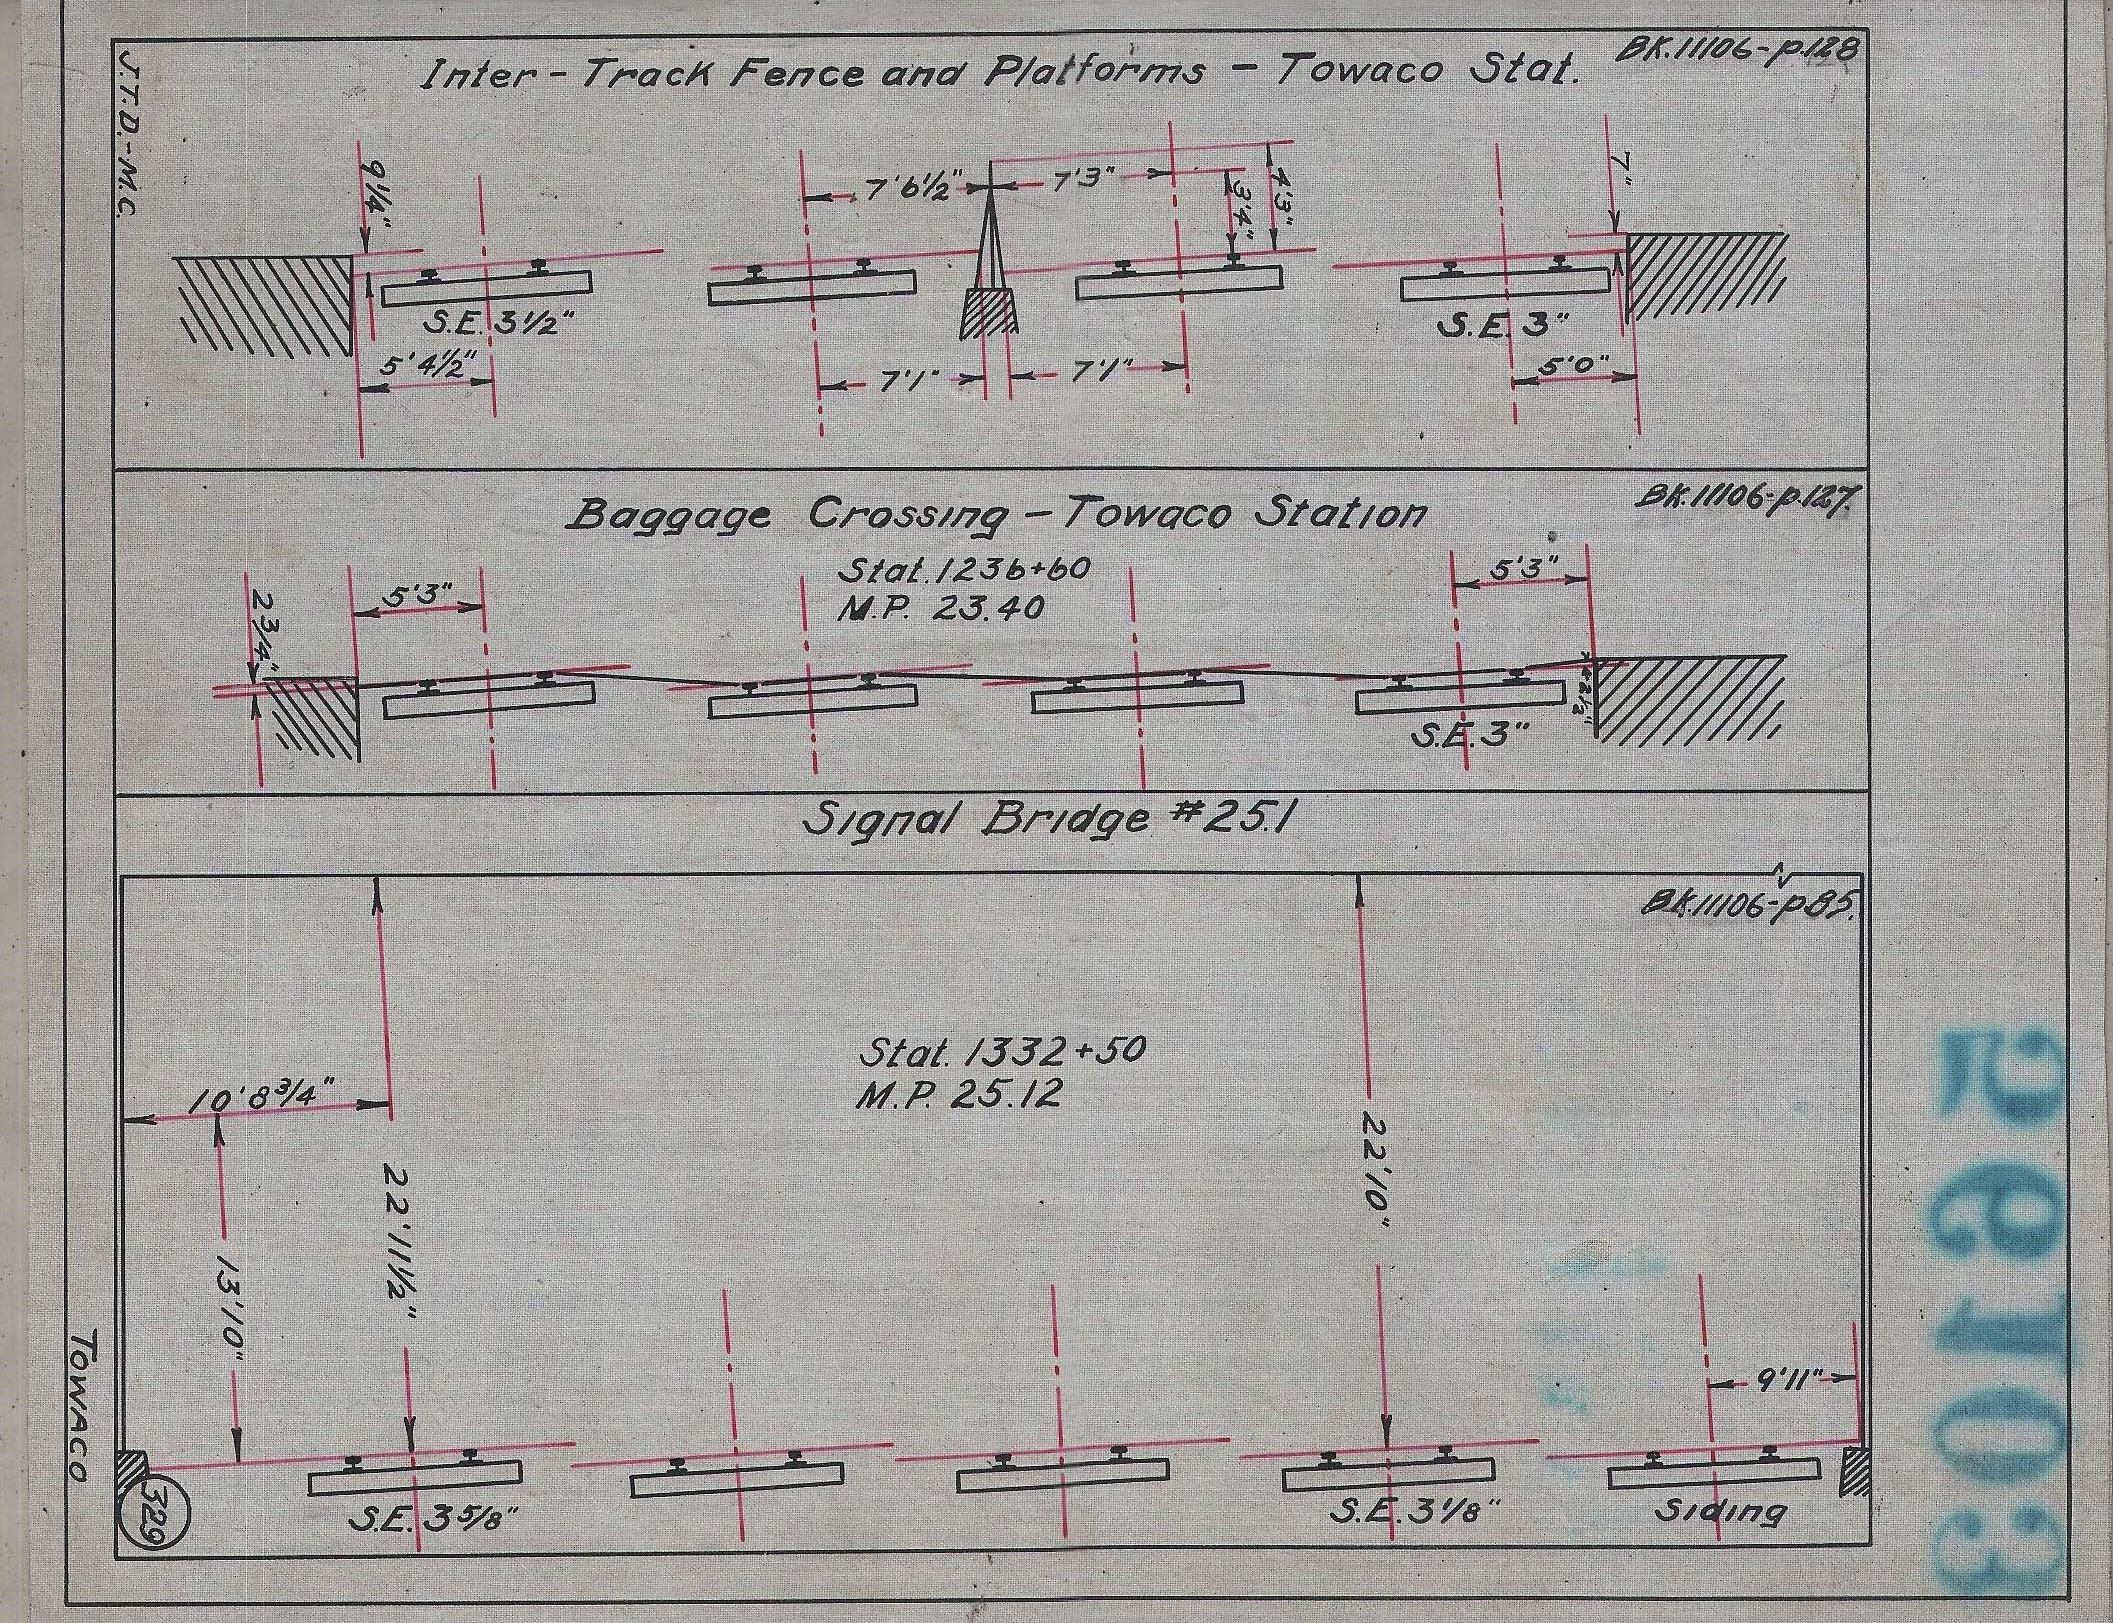 J.T.D.-M.C.
Inter-Track Fence and Platforms - Towaco Stat.
BK.11106-p.128
9 1/4"
7'6 1/2"
7'3"
3'4"
4'3"
7"
S.E. 3 1/2"
S.E. 3"
5' 4 1/2"
7'1"
7'1"
5'0"
Baggage Crossing - Towaco Station
BK.11106-p.127.
Stat. 1236+60
M.P. 23.40
5'3"
5'3"
2 3/4"
2 1/2"
S.E. 3"
Signal Bridge #25.1
BK.11106-p85.
Stat. 1332+50
M.P. 25.12
10' 8 3/4"
22'10"
22'11 1/2"
13'10"
9'11"
S.E. 3 5/8"
S.E. 3 1/8"
Siding
329
Towaco
59103